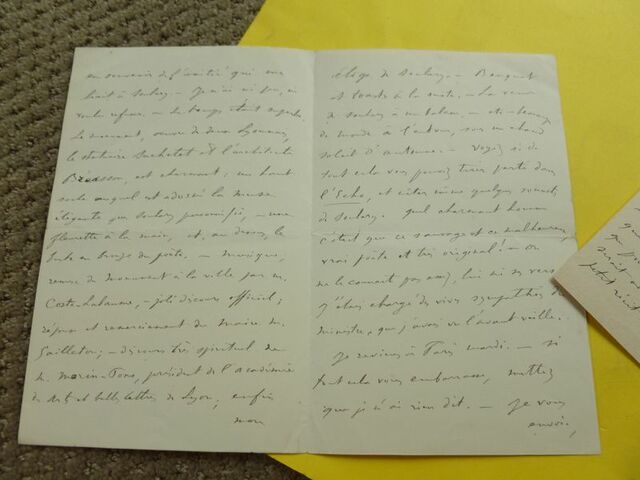 en souvenir de l'amitié qui me
liait à Soulary. — Je n'ai ni pu, ni
voulu refuser. — Le temps était superbe.
Le monument, œuvre de deux Lyonnais,
le statuaire Suchetet et l'architecte
Bréasson, est charmant; un haut
socle auquel est adossé la muse
élégante que Soulary personnifia, — une
fleurette à la main, et, au-dessus, le
buste en bronze du poète. — musique,
remise du monument à la ville par M.
Coste-Labaume, — joli discours officiel;
réponse et remerciement du maire M.
Gailleton; — discours très spirituel de
M. Morin-Pons, président de l'académie
des arts et belles lettres de Lyon; enfin
mon
éloge de Soulary. — Bouquet
et toasts à la suite. — La veuve
de Soulary — et beaucoup
de monde à l'entour, sous un chaud
soleil d'automne. — Voyez si de
tout cela vous pouvez tirer parti dans
l'Echo, et citer même quelques sonnets
de Soulary. Quel charmant homme
c'était que ce sauvage et ce malheureux,
vrai poète et très original! — on
ne le connait pas assez, lui ni ses vers.
J'étais chargé des vives sympathies du
ministre, que j'avais vu l'avant veille.
Je reviens à Paris mardi. — si
tout cela vous embarrasse, mettez
que je n'ai rien dit. — Je vous
envoie,
qu
petit